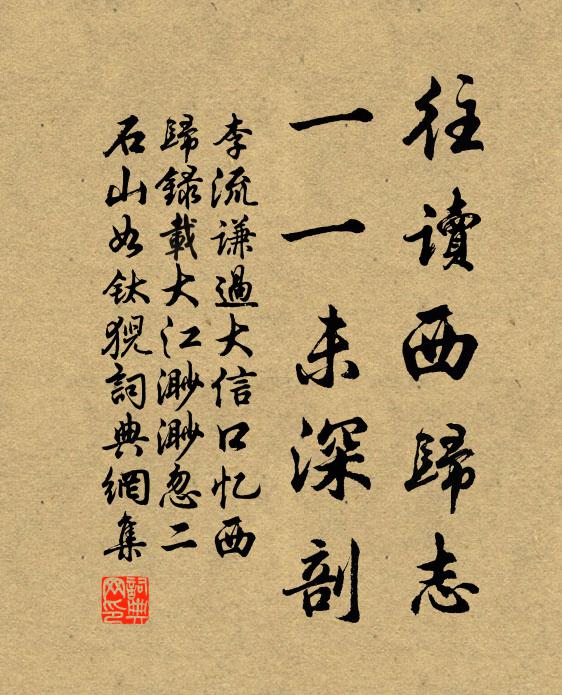 往讀西歸志
一一未深剖
李流謙過大信口忆西
歸録載大江渺渺忽二
石山如釱猊詞典網集
詞典网印